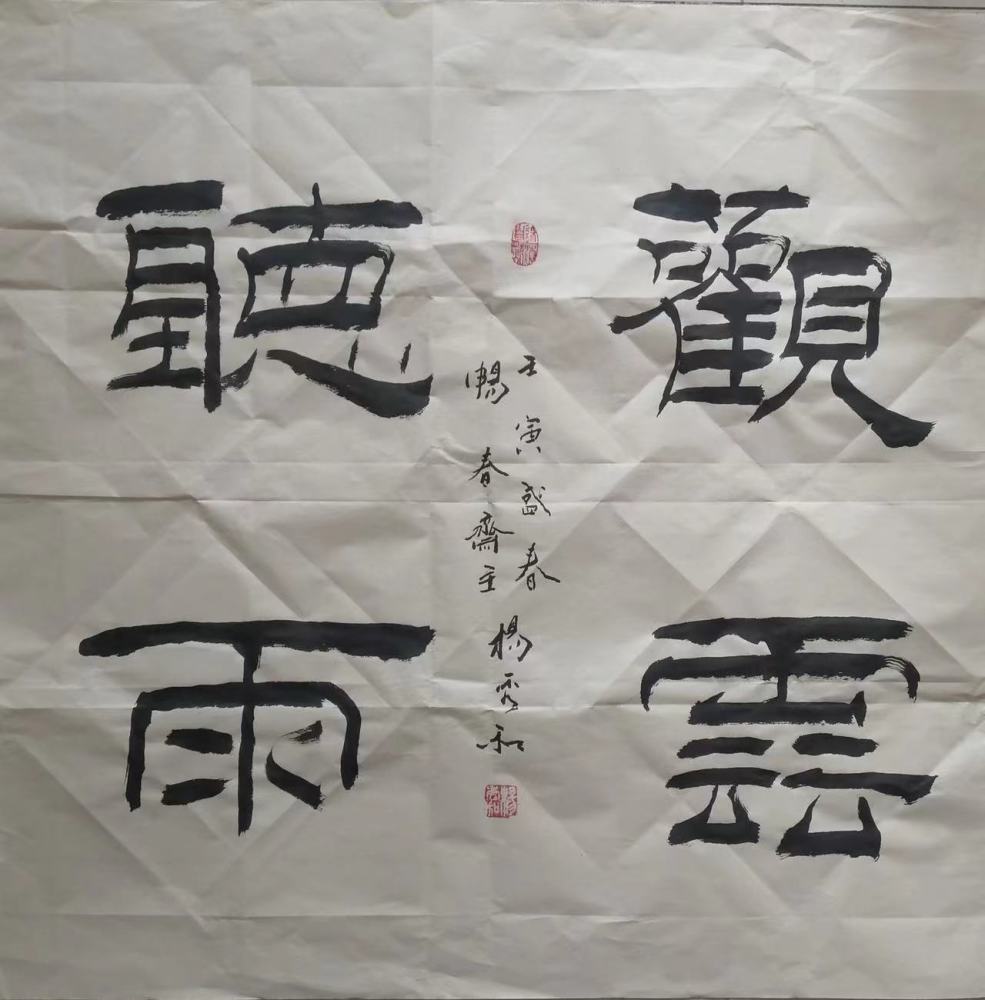 觀雲
聽雨
壬寅盛春
暢春齋主
楊秀和